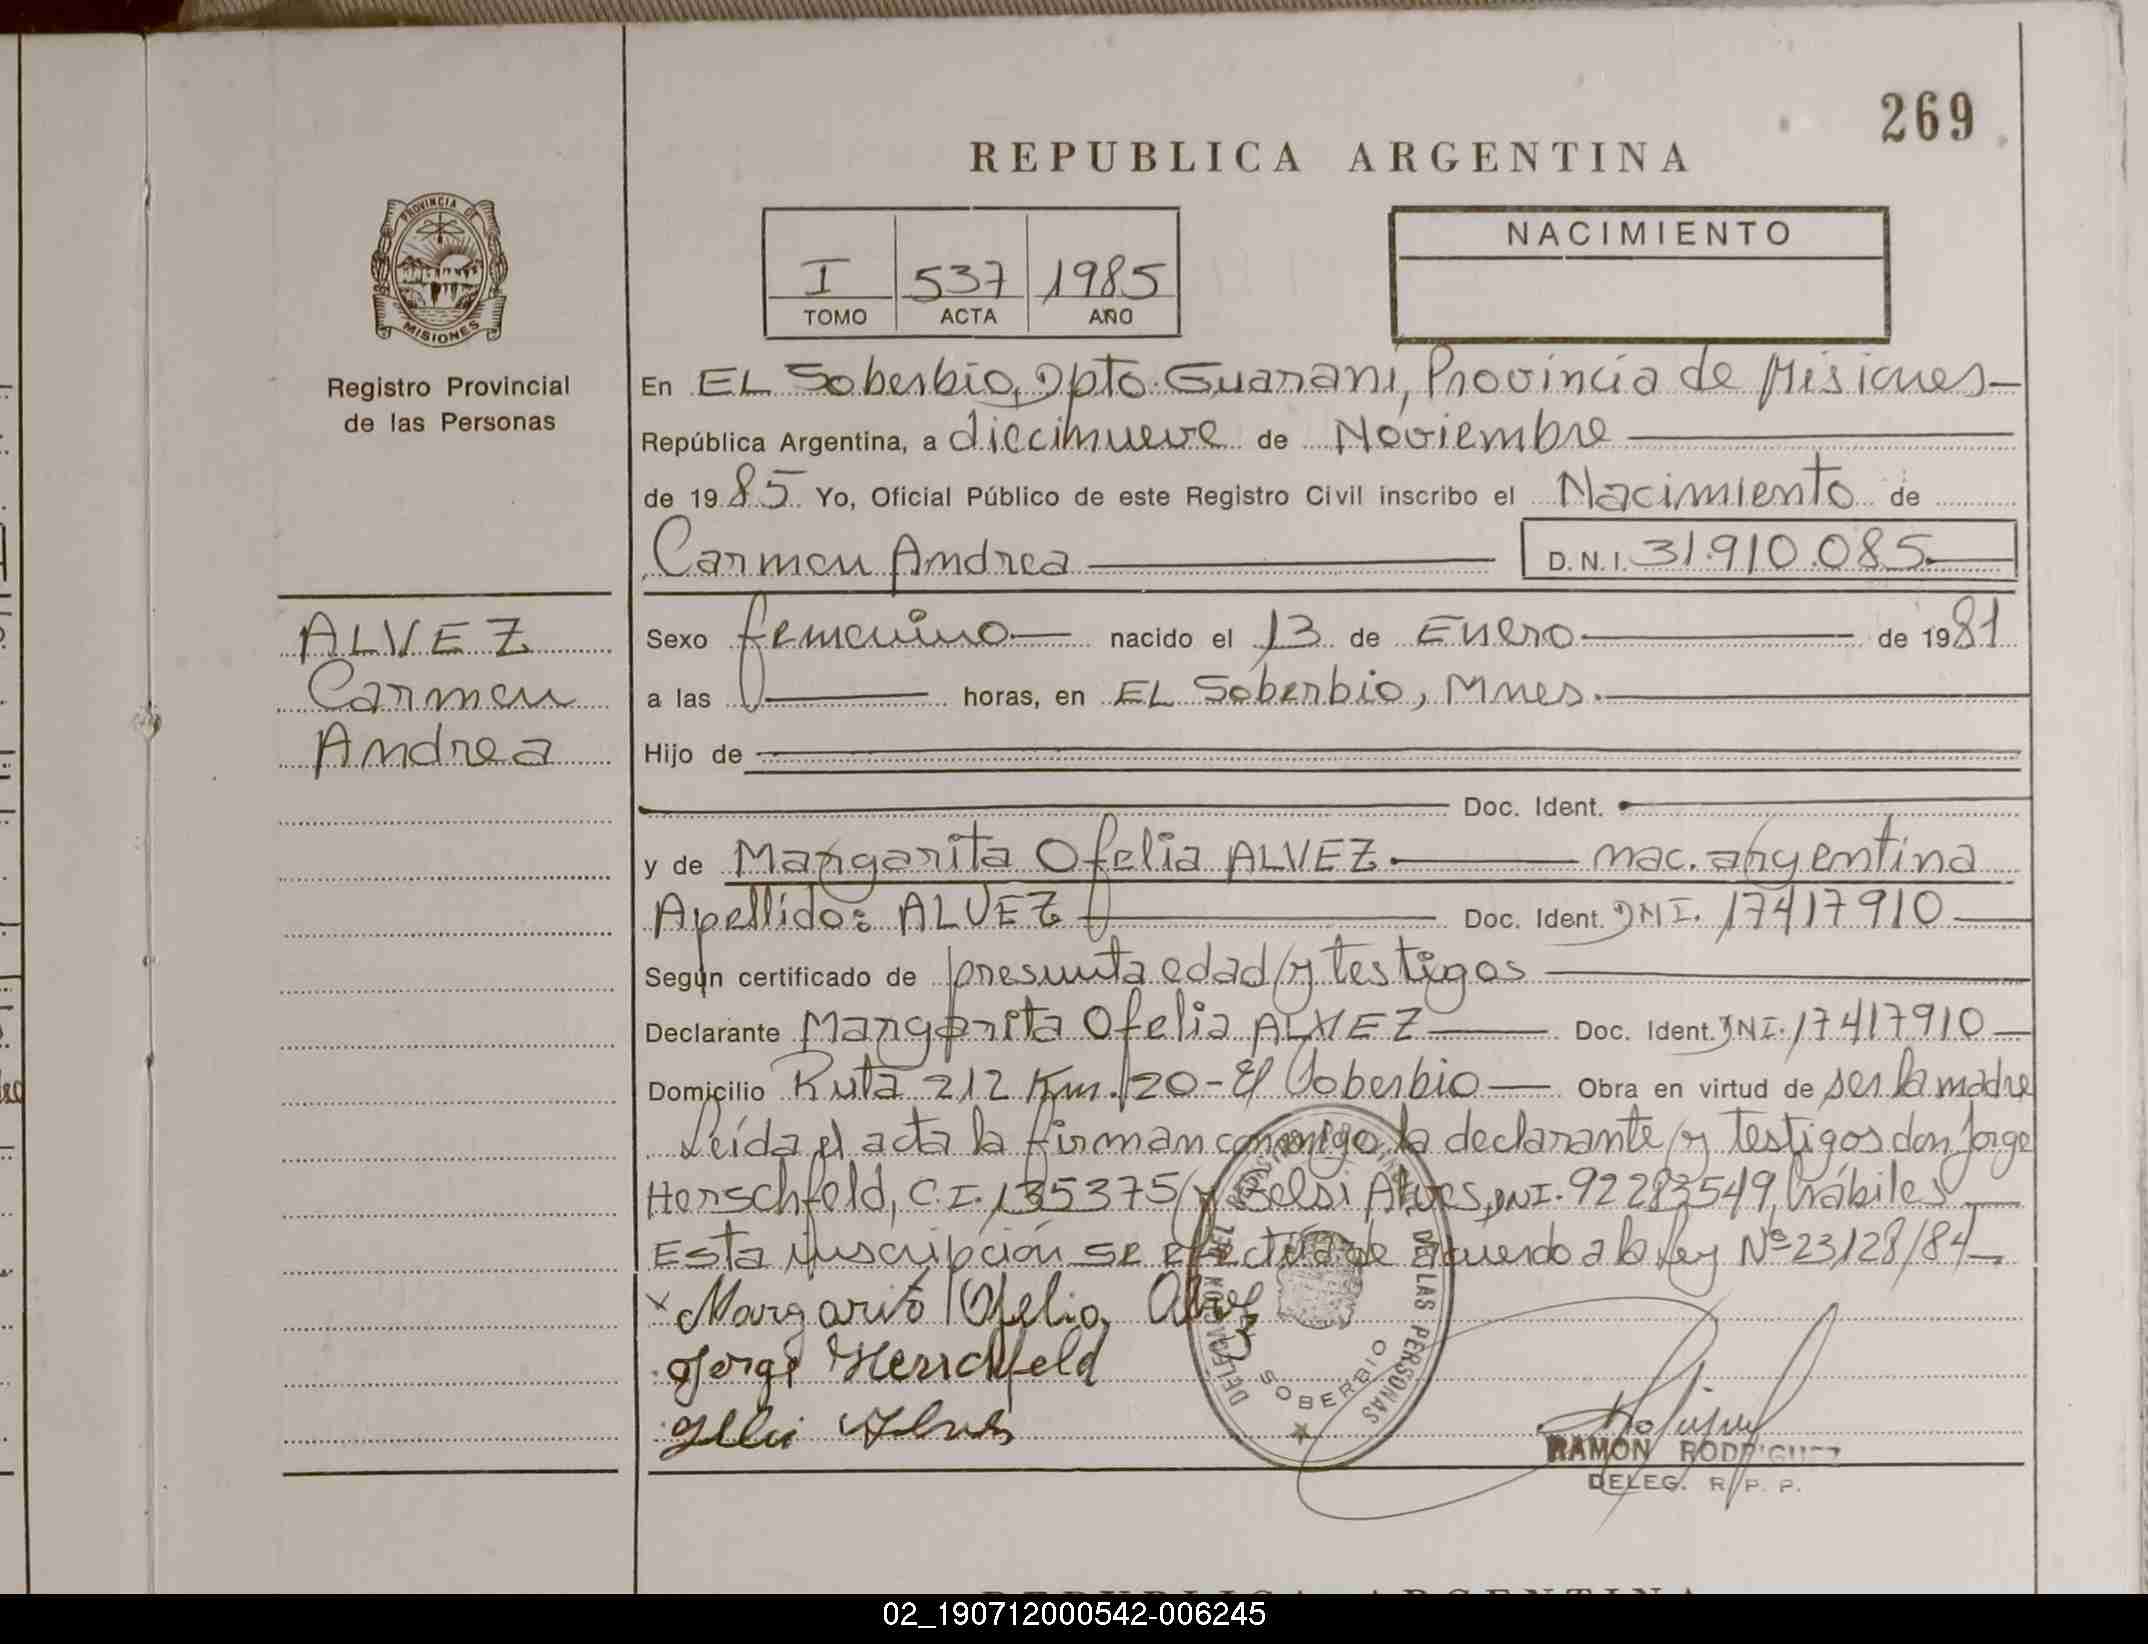 269
REPUBLICA ARGENTINA
PROVINCIA DE
MISIONES
Registro Provincial
de las Personas
I 537 1985
TOMO ACTA AÑO
NACIMIENTO
En EL Soberbio, Dpto. Guarani, Provincia de Misiones
República Argentina, a diecinueve de Noviembre
de 1985 Yo, Oficial Público de este Registro Civil inscribo el Nacimiento de
Carmen Andrea D.N.I. 31.910.085
ALVEZ
Carmen
Andrea
Sexo femenino nacido el 13 de Enero de 1981
a las horas, en EL Soberbio, Mnes.
Hijo de
Doc. Ident.
y de Margarita Ofelia ALVEZ nac. argentina
Apellido: ALVEZ Doc. Ident. DNI. 17417910
Según certificado de presunta edad y testigos
Declarante Margarita Ofelia ALVEZ Doc. Ident. DNI. 17417910
Domicilio Ruta 212 Km. 20 - El Soberbio Obra en virtud de ser la madre
Leída el acta la firman conmigo la declarante y testigos don Jorge
Herschfeld, C.I. 135375 y Alves, DNI. 92283549, hábiles
Esta inscripción se efectúa de acuerdo a la Ley Nº 23128/84
x Margarita Ofelia Alvez
Jorge Herschfeld
DELEGACION DEL REGISTRO PROVINCIAL DE LAS PERSONAS
SOBERBIO
RAMON RODRIGUEZ
DELEG. R. P. P.
REPUBLICA ARGENTINA
02_190712000542-006245